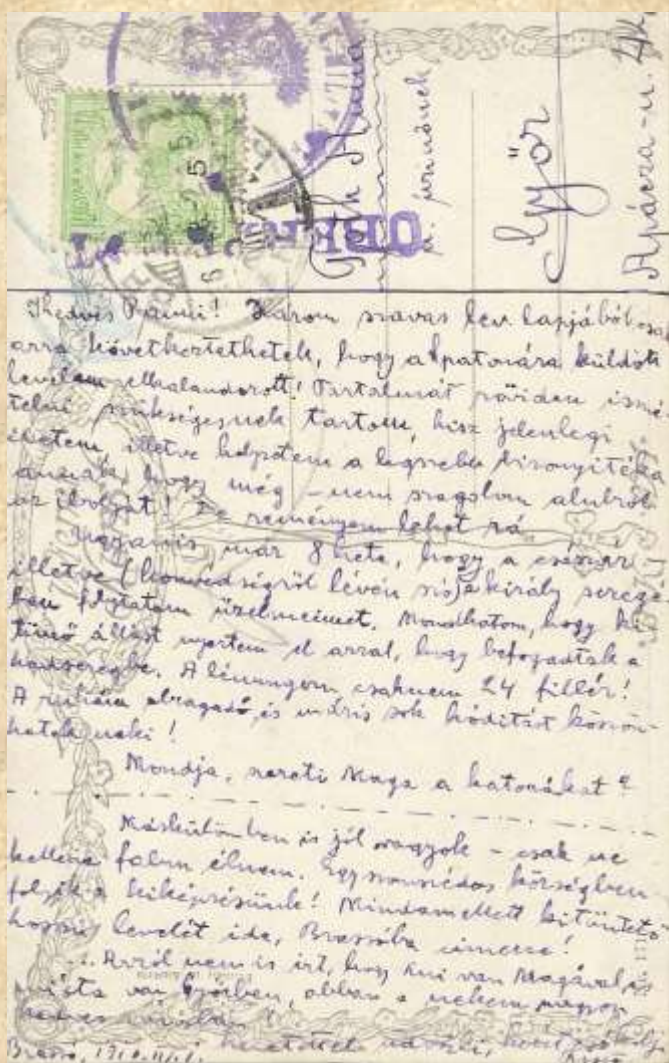 Tóth Anna
u. úrnőnek
Győr
Apáca-u.
OBE
Kedves Panni! Három szavas lev. lapjából csak
arra következtethetek, hogy a Apatovára küldött
levelem elkalandozott! Tartalmát röviden ismé
telni szükségesnek tartom, hisz jelenlegi
életem, illetve helyzetem a legszebb bizonyítéka
annak, hogy még – nem szagolom alulról
az ibolyát! De reményem lehet rá
Ugyanis már 8 hete, hogy a császár
illetve (honvédségről lévén szó) a király serege
ben folytatom üzelmeimet. Mondhatom, hogy ki
tünő állást nyertem el azzal, hogy befogadtak a
hadseregbe. A lénungom csaknem 24 fillér!
A ruhám elragadó, és máris sok hódítást köszön
hetek neki!
Mondja, szereti Maga a katonákat?
Máskülönben is jól vagyok – csak ne
kellene falun élnem. Egy szomszédos községben
folyik a kiképzésünk! Mindamellett kitüntető
hosszú levelét ide, Brassóba címezze!
Arról nem is írt, hogy mi van Magával és
mióta van Győrben, abban a nekem nagyon
kedves városban!
Brassó, 191 üdvözli